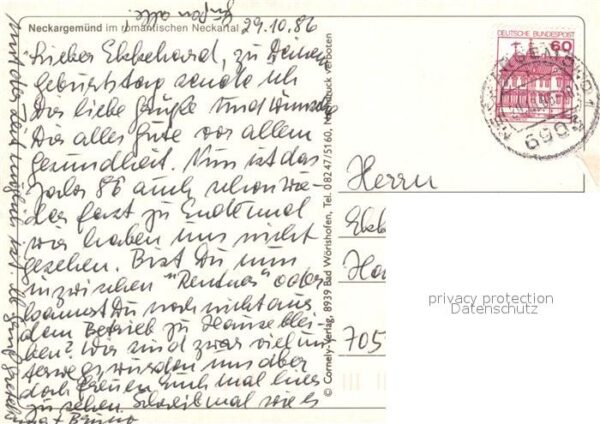 Neckargemünd im romantischen Neckartal
29.10.86
Lieber Ekkehard, zu Deinem
Geburtstag sende ich
Dir liebe Grüße und wünsche
Dir alles Gute vor allem
Gesundheit. Nun ist das
Jahr 86 auch schon wie-
der fast zu Ende und
wir haben uns nicht
gesehen. Bist Du nun
inzwischen "Rentner" oder
kannst Du noch nicht aus
dem Betrieb zu Hause blei-
ben? Wir sind zwar viel un-
terwegs, würden uns aber
doch freuen Euch mal hier
zu sehen. Schreib mal wie es
+ Bruno
© Cornely-Verlag, 8939 Bad Wörishofen, Tel. 08247/5160, Nachdruck verboten
DEUTSCHE BUNDESPOST
60
Herrn
705
privacy protection
Datenschutz